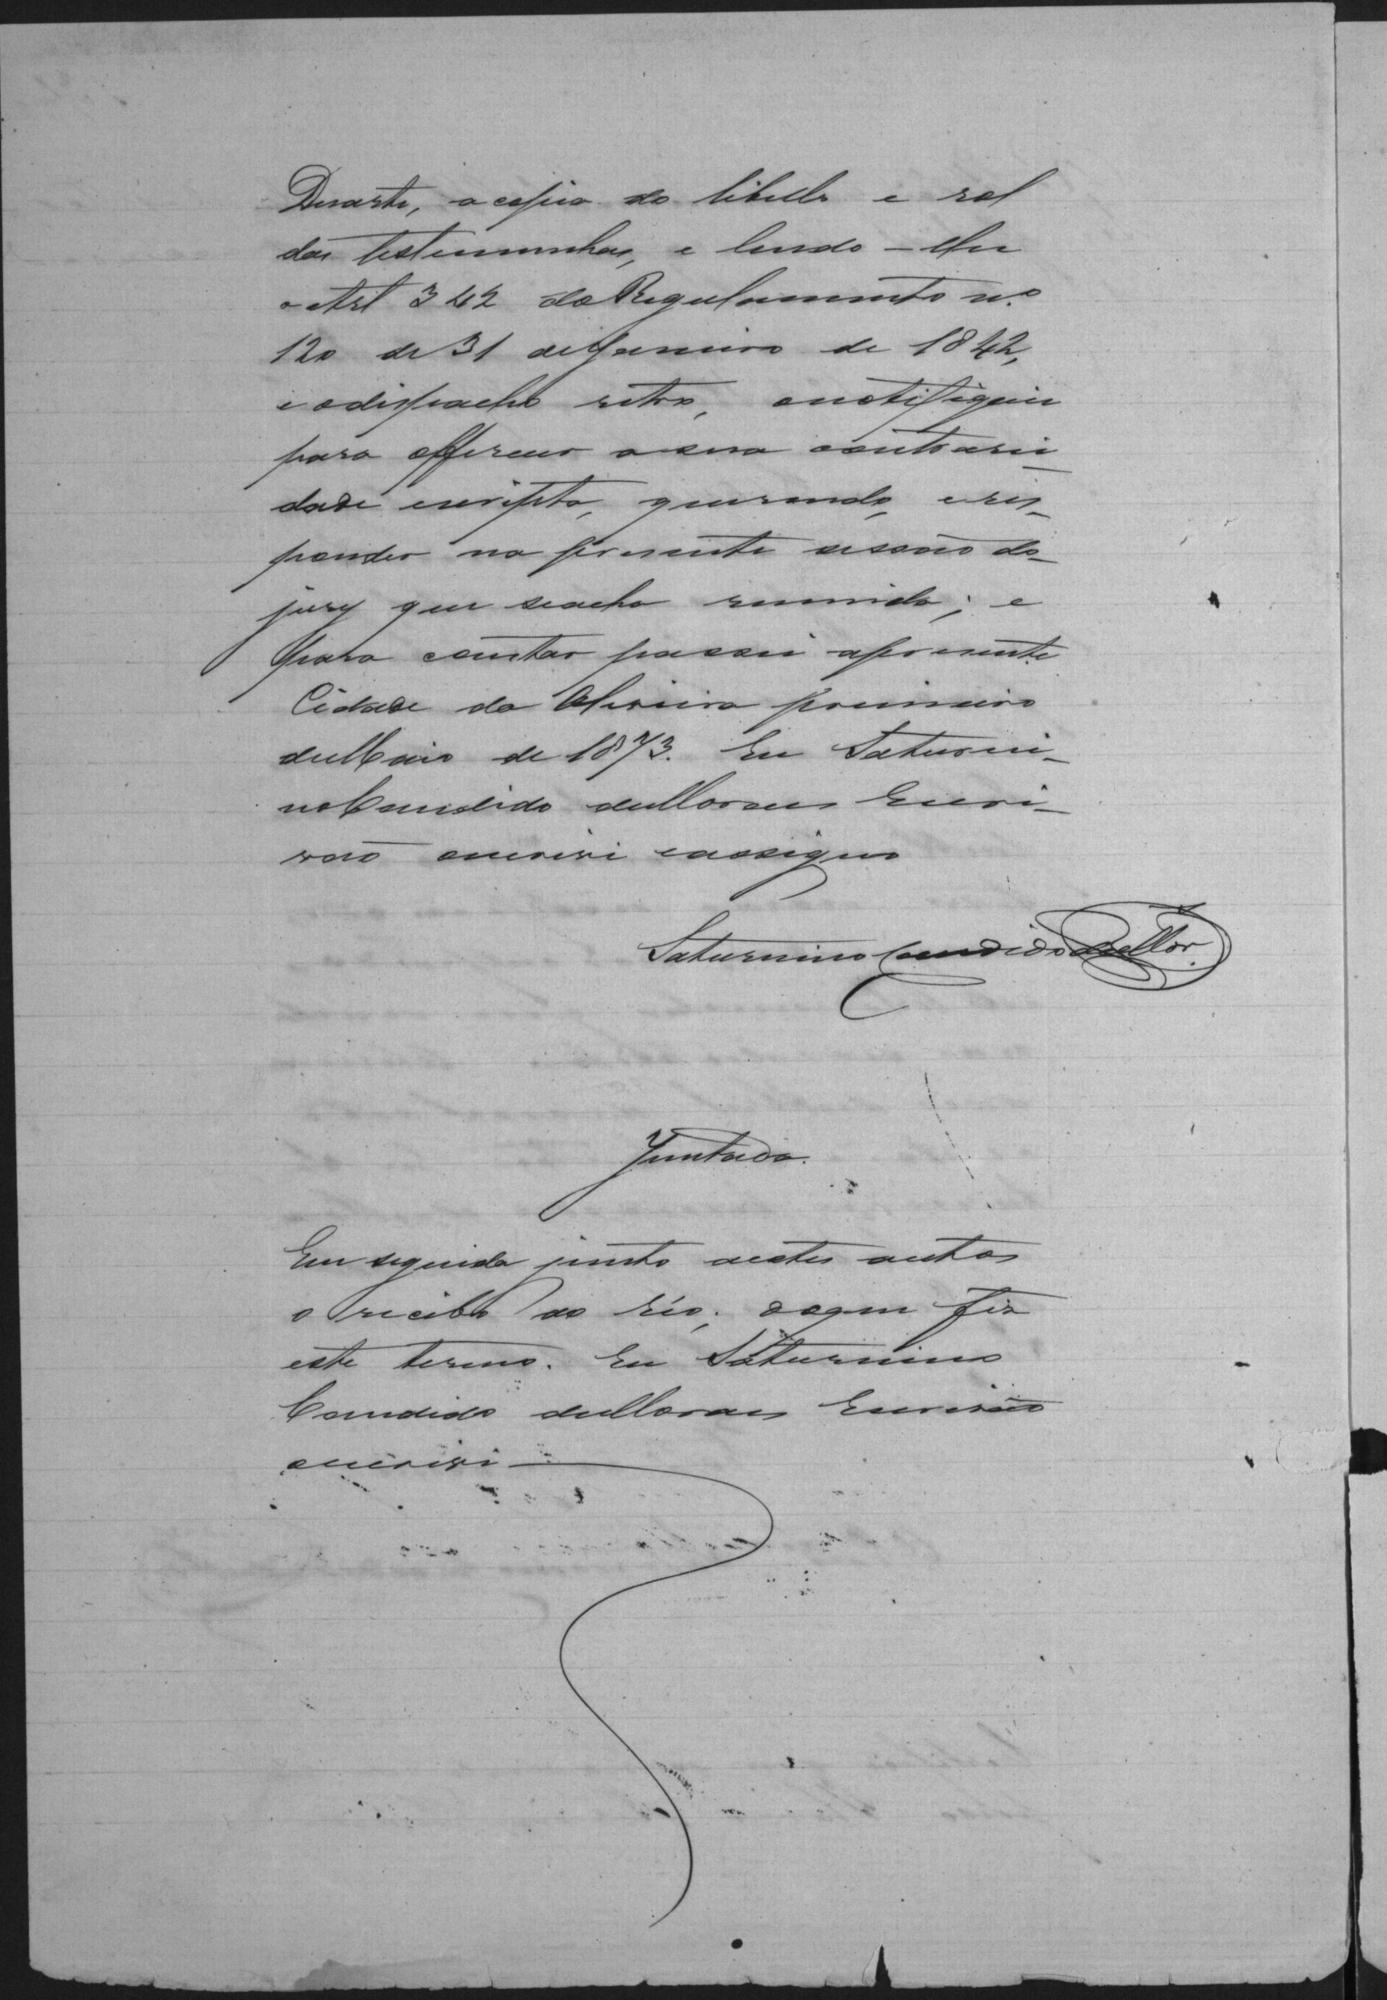 Duarte, a copia do libello e rol
das testemunhas, e lendo-lhe
o Art 342 do Regulamento n.º
120 de 31 de Janeiro de 1842,
e o dispacho retro, o notifiquei
para offerecer a sua contrarie-
dade escripta, querendo, e res-
ponder na presente sessão do
jury que se acha reunido; e
para constar passei apresente
Cidade da Oliveira primeiro
de Maio de 1873. Eu Saturni-
no Candido de Moraes Escri-
vão oescrevi eassigno
Saturnino Candido de Mor.
Juntada.
Em seguida junto aestes autos
o recibo do réo; doque fiz
este termo. Eu Saturnino
Candido de Moraes Escrivão
oescrevi